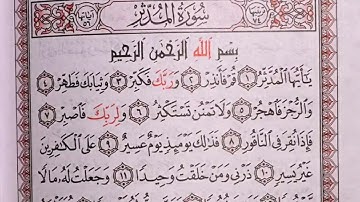 سُورَةُ الْمُدَّثِّرِ
بِسْمِ اللَّهِ الرَّحْمَٰنِ الرَّحِيمِ
يَٰٓأَيُّهَا ٱلْمُدَّثِّرُ ١ قُمْ فَأَنذِرْ ٢ وَرَبَّكَ فَكَبِّرْ ٣ وَثِيَابَكَ فَطَهِّرْ ٤
وَٱلرُّجْزَ فَٱهْجُرْ ٥ وَلَا تَمْنُن تَسْتَكْثِرُ ٦ وَلِرَبِّكَ فَٱصْبِرْ ٧
فَإِذَا نُقِرَ فِى ٱلنَّاقُورِ ٨ فَذَٰلِكَ يَوْمَئِذٍ يَوْمٌ عَسِيرٌ ٩ عَلَى ٱلْكَٰفِرِينَ
غَيْرُ يَسِيرٍ ١٠ ذَرْنِى وَمَنْ خَلَقْتُ وَحِيدًا ١١ وَجَعَلْتُ لَهُۥ مَالًا